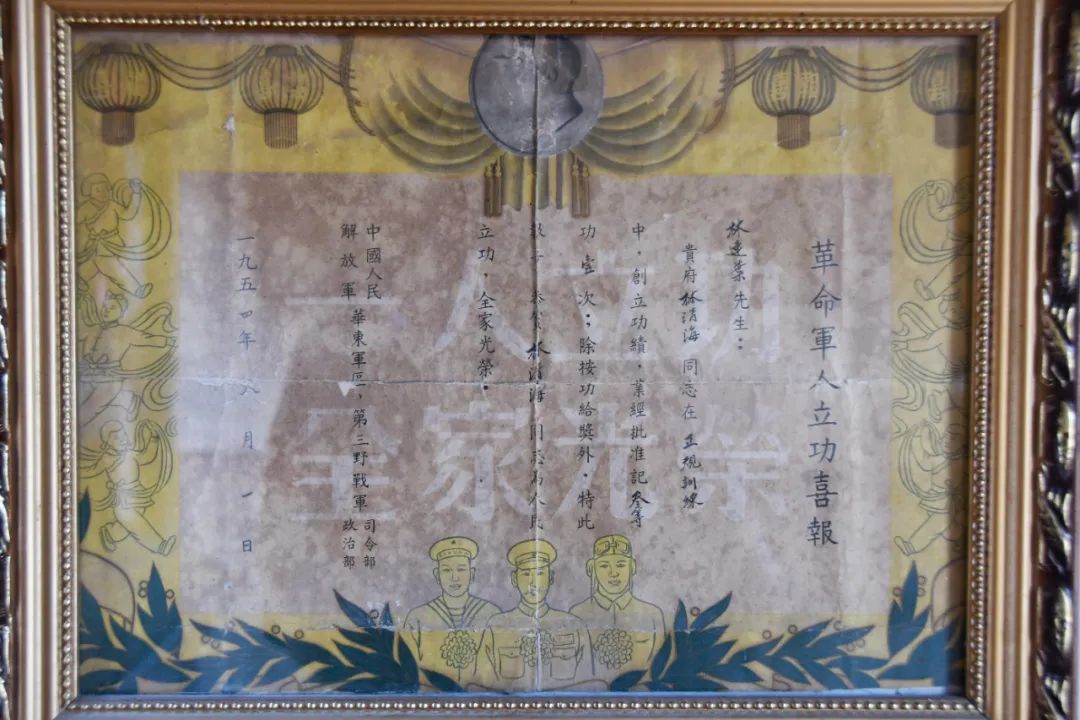 革命軍人立功喜報
林先生：
貴府林清海同志在正規訓練
中，創立功績，業經批准記叁等
功壹次；除按功給獎外，特此
恭賀林清海同志為人民
立功，全家光榮。
中國人民
解放軍
華東軍區、第三野戰軍
司令部
政治部
一九五四年八月一日
一人立功
全家光榮